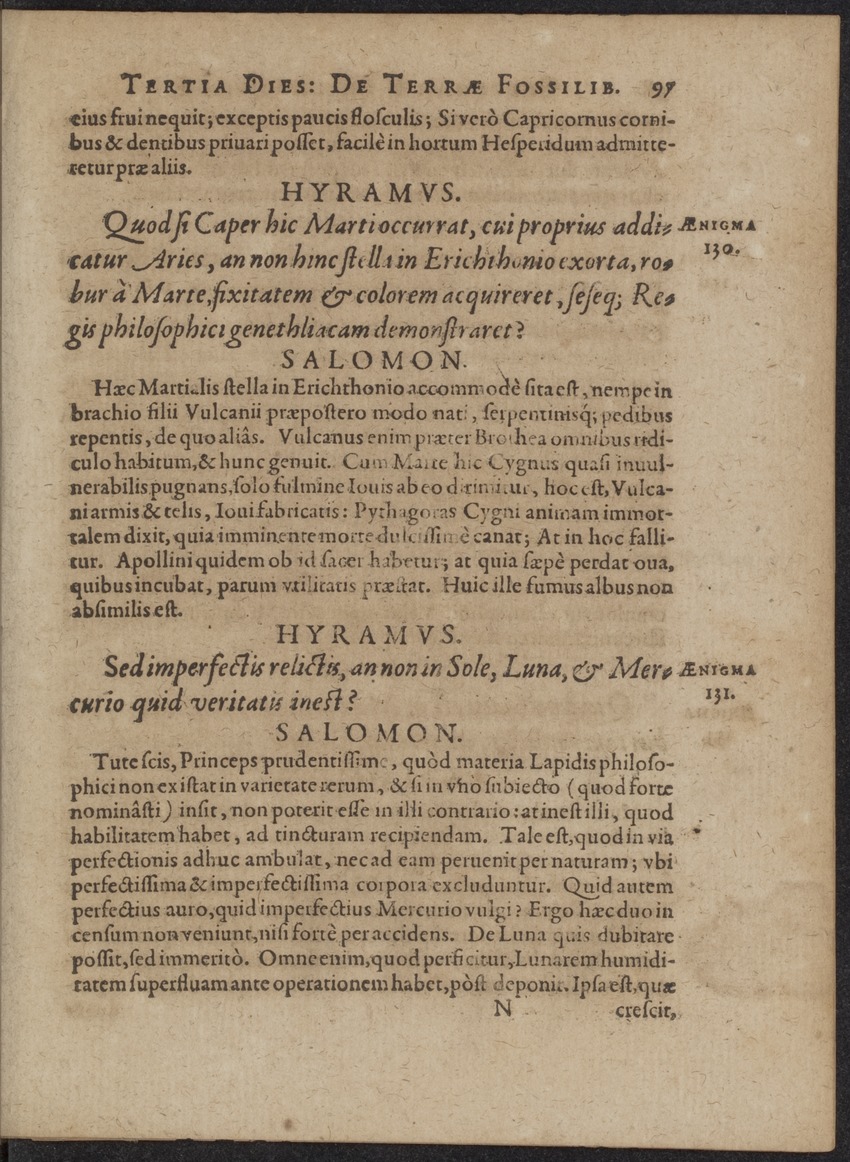 TERTIA DIES: DE TERRÆ FOSSILIB. 97
eius frui nequit; exceptis paucis flosculis; Si verò Capricornus corni-
bus & dentibus priuari posset, facilè in hortum Hesperidum admitte-
retur præ aliis.
HYRAMVS.
Quod si Caper hic Marti occurrat, cui proprius addi- ÆNIGMA
catur Aries, an non hinc stella in Erichthonio exorta, ro- 130.
bur à Marte, fixitatem & colorem acquireret, seseq; Re-
gis philosophici genethliacam demonstraret?
SALOMON.
Hæc Martialis stella in Erichthonio accommodè sita est, nempe in
brachio filii Vulcanii præpostero modo nati, serpentinisq́; pedibus
repentis, de quo aliâs. Vulcanus enim præter Brothea omnibus ridi-
culo habitum, & hunc genuit. Cum Marte hic Cygnus quasi inuul-
nerabilis pugnans, solo fulmine Iouis ab eo dirimitur, hoc est, Vulca-
ni armis & telis, Ioui fabricatis: Pythagoras Cygni animam immor-
talem dixit, quia imminente morte dulcissimè canat; At in hoc falli-
tur. Apollini quidem ob id sacer habetur; at quia sæpè perdat oua,
quibus incubat, parum vtilitatis præstat. Huic ille fumus albus non
absimilis est.
HYRAMVS.
Sed imperfectis relictis, an non in Sole, Luna, & Mer- ÆNIGMA
curio quid veritatis inest? 131.
SALOMON.
Tute scis, Princeps prudentissime, quòd materia Lapidis philoso-
phici non existat in varietate rerum, & si in vno subiecto (quod forte
nominâsti) insit, non poterit esse in illi contrario: at inest illi, quod
habilitatem habet, ad tincturam recipiendam. Tale est, quod in via
perfectionis adhuc ambulat, nec ad eam peruenit per naturam; vbi
perfectissima & imperfectissima corpora excluduntur. Quid autem
perfectius auro, quid imperfectius Mercurio vulgi? Ergo hæc duo in
censum non veniunt, nisi fortè per accidens. De Luna quis dubitare
possit, sed immeritò. Omne enim, quod perficitur, Lunarem humidi-
tatem superfluam ante operationem habet, pòst deponit. Ipsa est, quæ
N crescit,